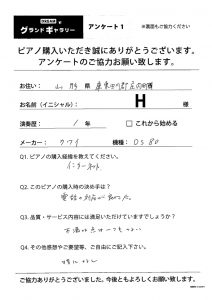 グランドギャラリー アンケート1 ※裏面もご協力ください
ピアノ購入いただき誠にありがとうございます。
アンケートのご協力お願い致します。
お住い: 山形 県
お名前(イニシャル): H 様
演奏歴: 1 年 □ これから始める
メーカー: カワイ 機種: DS80
Q1. ピアノ購入経緯を教えてください。
インターネット
Q2. このピアノの購入時の決め手は?
電話の対応が良かった。
Q3. 品質・サービス内容には満足いただけていますでしょうか?
Q4. その他感想やご要望等、ご自由にご記入下さい。
特になし
ご協力ありがとうございました。今後ともよろしくお願い致します。